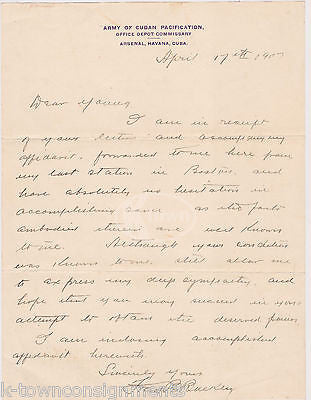 ARMY OF CUBAN PACIFICATION,
OFFICE DEPOT COMMISSARY
ARSENAL, HAVANA, CUBA.
April 17th 1907
Dear Young
I am in receipt
of your letter and accompanying
affidavit, forwarded to me here from
my last station in Boston, and
have absolutely no hesitation in
accomplishing same as the facts
embodied therein are well known
to me. Although your condition
was known to me, still allow me
to express my deep sympathy, and
hope that you may succeed in your
attempt to obtain the deserved
I am inclosing accomplished
affidavit herewith.
Sincerely Yours
k-townconsignments@ebay